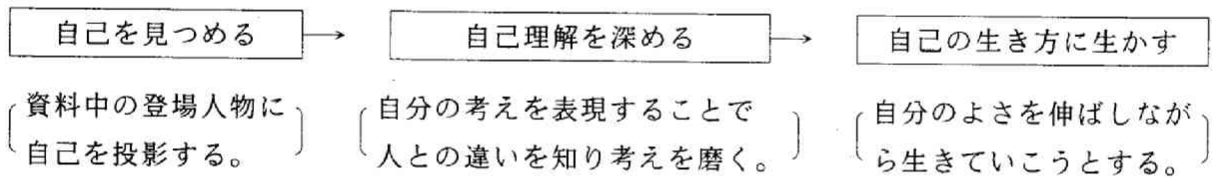 自己を見つめる
自己理解を深める
自己の生き方に生かす
資料中の登場人物に
自己を投影する。
自分の考えを表現することで
人との違いを知り考えを磨く。
自分のよさを伸ばしなが
ら生きていこうとする。